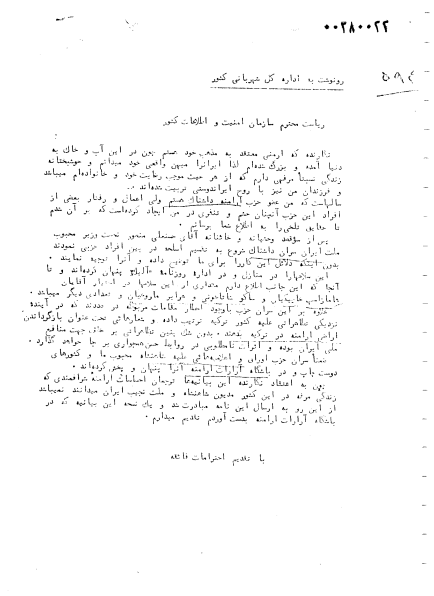 ۰۰۲۸۰۰۲۲
رونوشت به اداره کل شهربانی کشور
ریاست محترم سازمان امنیت و اطلاعات کشور
نگارنده که ارمنی معتقد به مذهب خود هستم چون در این آب و خاک به
دنیا آمده و بزرگ شده‌ام لذا ایرانرا میهن واقعی خود میدانم و خوشبختانه
زندگی نسبتاً مرفهی دارم که از هر حیث موجب رضایت خود و خانواده‌ام میباشد
و فرزندان من نیز با روح ایراندوستی تربیت شده‌اند
سالهاست که من عضو حزب ارامنه داشناک هستم ولی اعمال و رفتار بعضی از
افراد این حزب آنچنان خشم و تنفری در من ایجاد کرده‌است که بر آن شدم
تا حقایق تلخی را به اطلاع شما برسانم
پس از سوءقصد وحشیانه و خائنانه آقای حسنعلی منصور نخست وزیر محبوب
ملت ایران سران داشناک شروع به تقسیم اسلحه در بین افراد حزبی نمودند
بدون اینکه دلائل این کار را برای ما توضیح داده و آنرا توجیه نمایند
این سلاحها را در منازل و در اداره روزنامه «آلیک» پنهان کرده‌اند و تا
آنجا که این جانب اطلاع دارم مقداری از این سلاحها در اختیار آقایان
و هرایر ماروخیان و تعدادی دیگر میباشد
علاوه بر آن سران حزب باوجود اخطار مقامات مربوطه در صددند که در آینده
نزدیکی تظاهراتی علیه کشور ترکیه ترتیب داده و شعارهائی تحت عنوان بازگرداندن
اراضی ارامنه در ترکیه بدهند و بدون شک چنین تظاهراتی بر خلاف جهت منافع
ملی ایران بوده و اثرات نامطلوبی در روابط حسن همجواری بر جا خواهد گذارد
ضمناً سران حزب اوراق و اعلامیه‌هائی علیه شاهنشاه محبوب ما و کشورهای
دوست چاپ و در باشگاه آرارات ارامنه آنرا پنهان و پخش کرده‌اند
چون به اعتقاد نگارنده این بیانیه‌ها ترجمان احساسات ارامنه شرافتمندی که
زندگی مرفه در این کشور مدیون شاهنشاه و ملت نجیب ایران میدانند نمیباشد
از این رو به ارسال این نامه مبادرت شد و یک نسخه این بیانیه که در
باشگاه آرارات ارامنه بدست آوردم تقدیم میدارم
با تقدیم احترامات فائقه